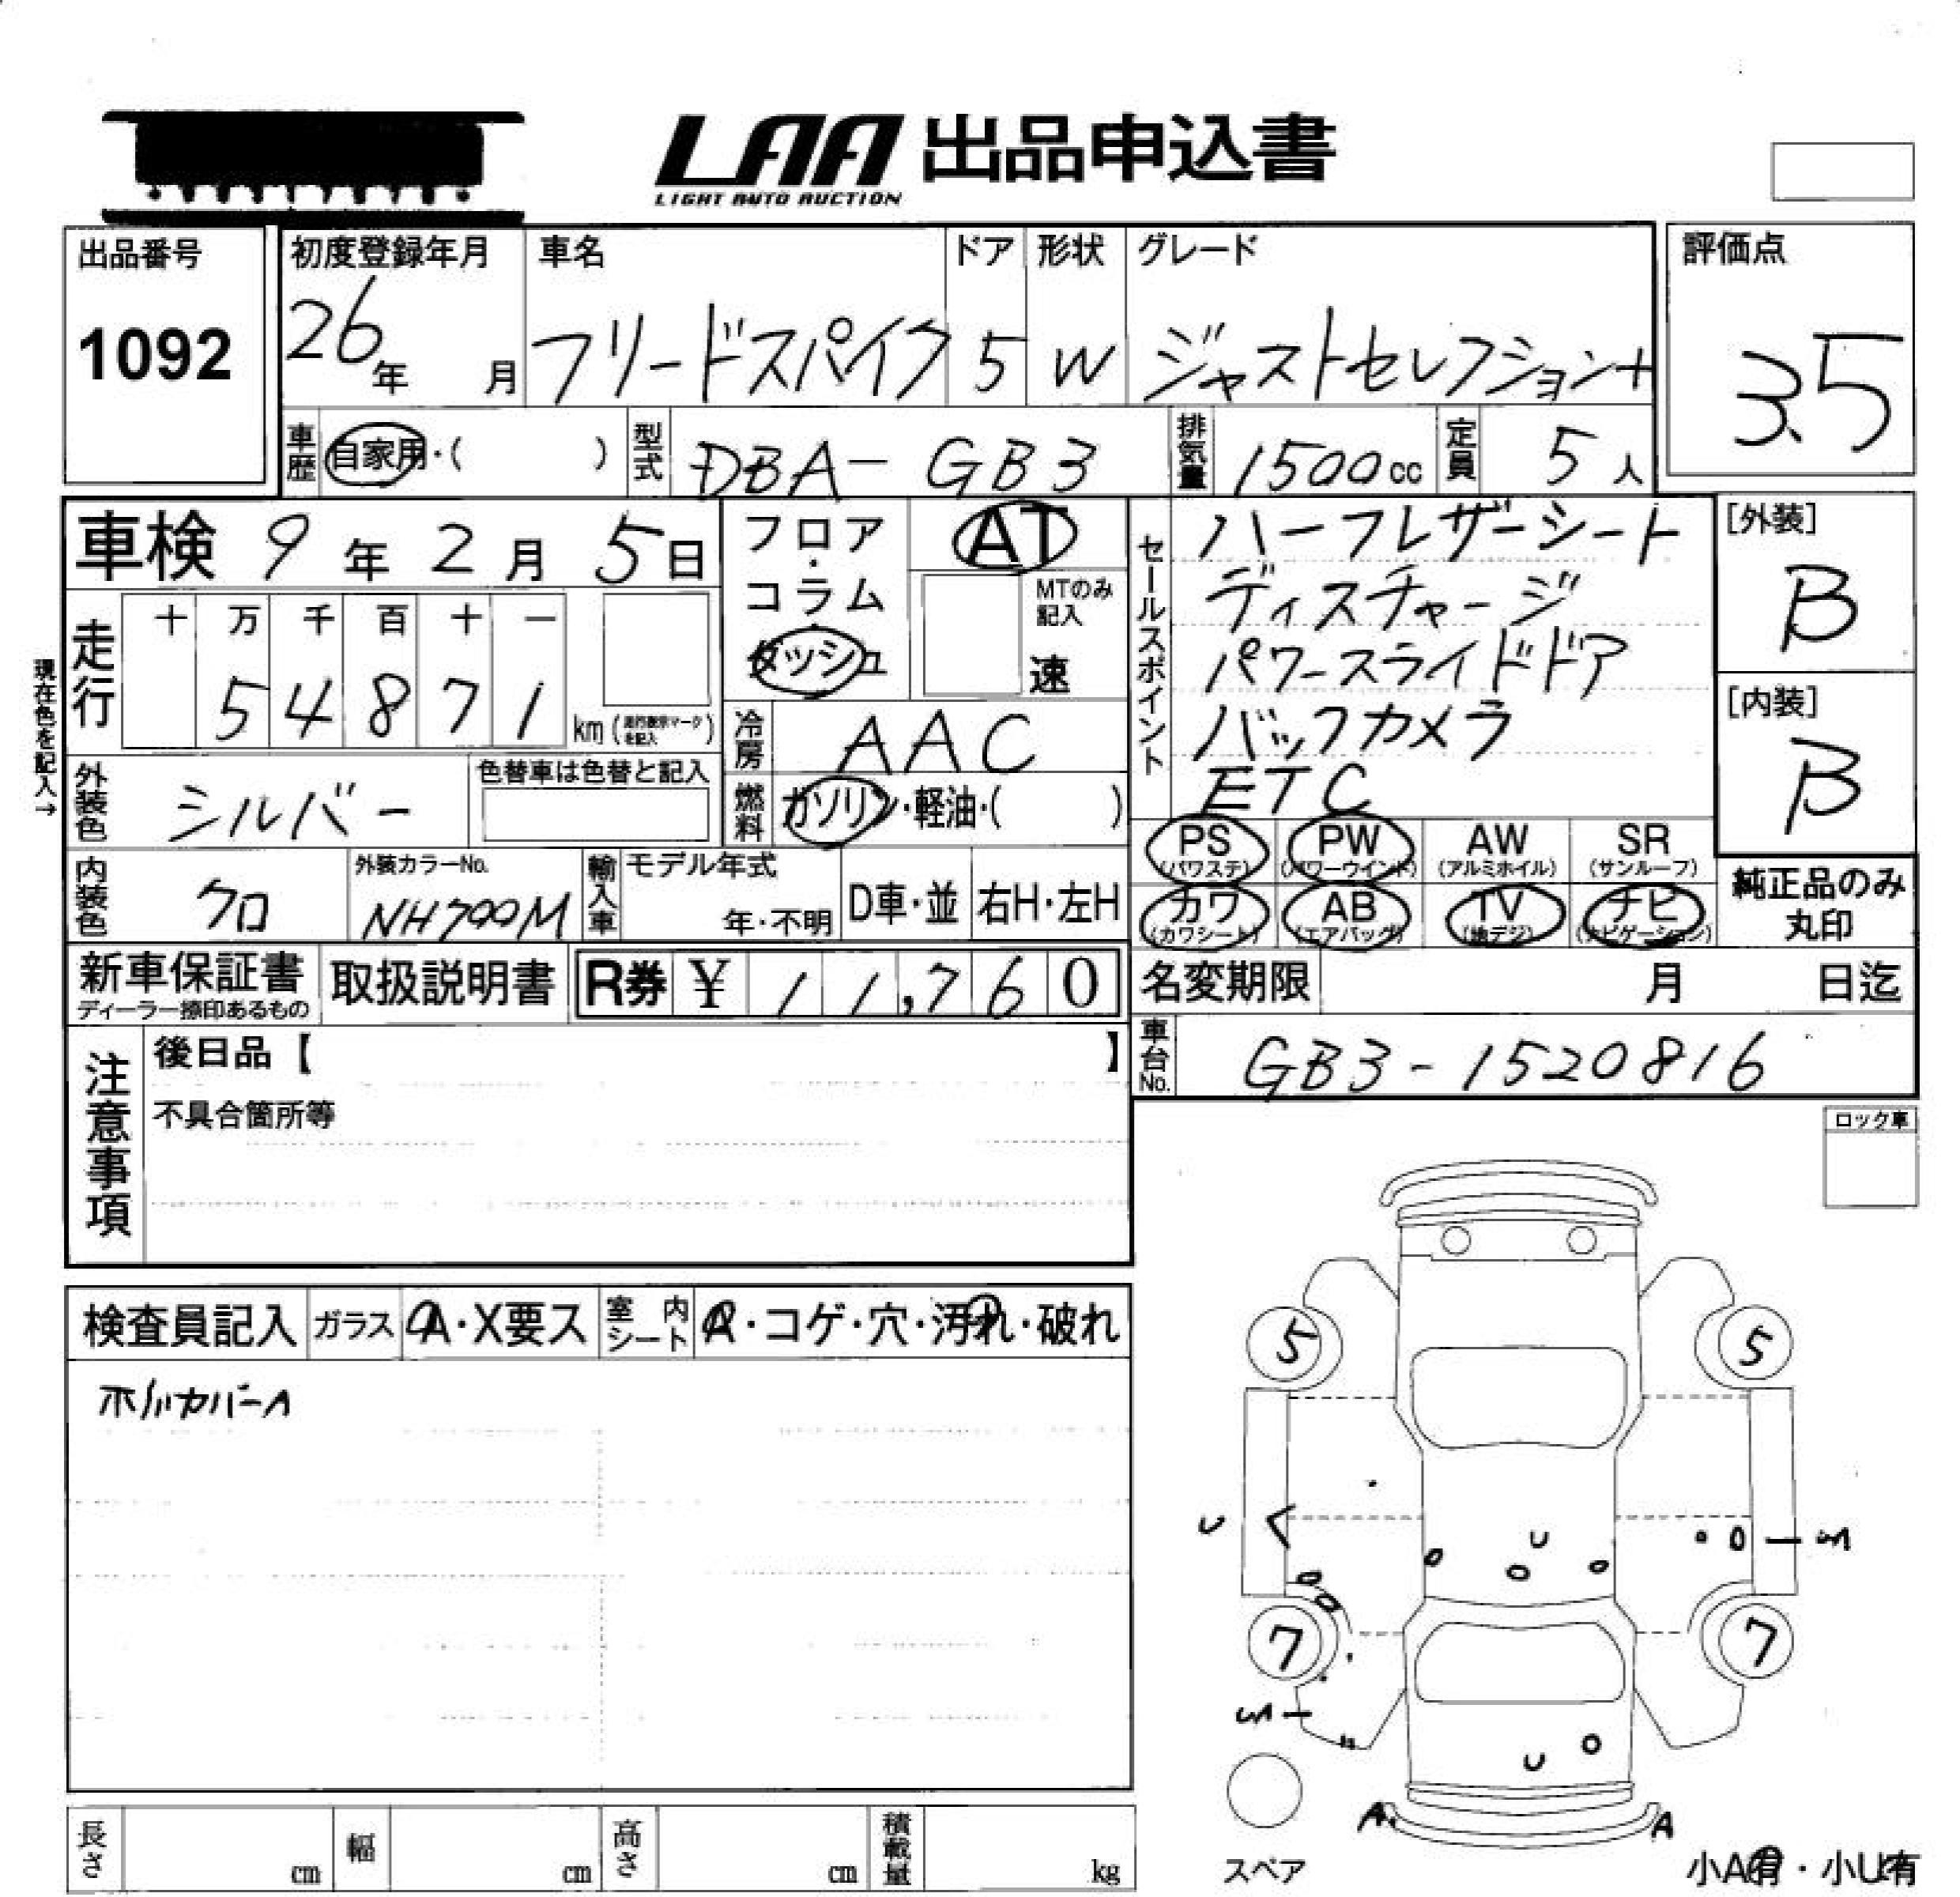 LAA 出品申込書
LIGHT AUTO AUCTION
出品番号 初度登録年月 車名 ドア 形状 グレード 評価点
1092 26年 月 フリードスパイク 5 W ジャストセレクション+ 3.5
車歴 自家用・( ) 型式 DBA-GB3 排気量 1500cc 定員 5人
車検 9年2月5日
フロア・コラム ダッシュ
AT
MTのみ記入
速
セールスポイント
ハーフレザーシート
ディスチャージ
パワースライドドア
バックカメラ
ETC
[外装]
B
[内装]
B
現在色を記入→
走行 十 万 千 百 十 一
54871 km (走行表示マークを記入)
冷房 AAC
外装色 シルバー 色替車は色替と記入
燃料 ガソリン・軽油・( )
PS PW AW SR
(パワステ) (パワーウインド) (アルミホイル) (サンルーフ)
カワ AB TV ナビ
(カワシート) (エアバッグ) (地デジ) (ナビゲーション)
純正品のみ
丸印
内装色 クロ 外装カラーNo. NH700M 輸入車 モデル年式 年・不明 D車・並 右H・左H
新車保証書 取扱説明書 R券 ¥ 11,760
ディーラー捺印あるもの
名変期限 月 日迄
車台No. GB3-1520816
注意事項
後日品【 】
不具合箇所等
ロック車
検査員記入 ガラス A・X要ス 室内シート ・コゲ・穴・汚れ・破れ
ホイルカバーA
5 5
U
U
S
7 7
S
U
A A
スペア
小A有・小U有
長さ cm 幅 cm 高さ cm 積載量 kg